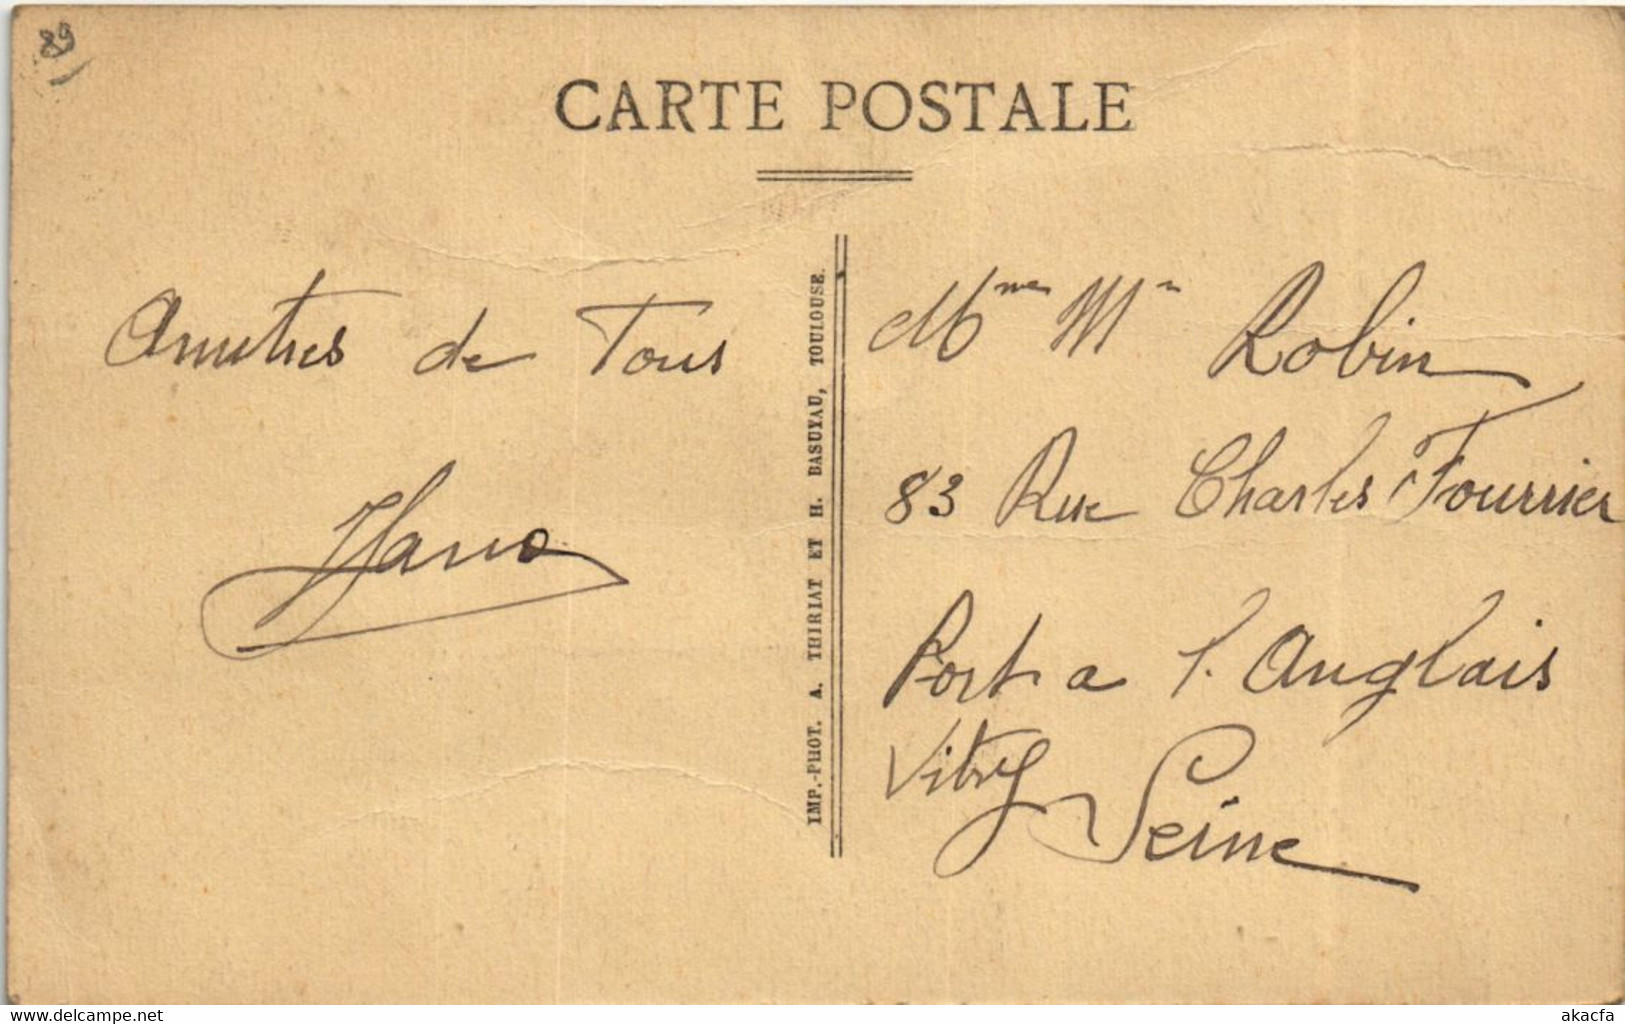 89
CARTE POSTALE
Amitiés de Tous
IMP.-PHOT. A. THIRIAT ET H. BASUYAU, TOULOUSE.
Mme Mr Robin
83 Rue Charles Fourrier
Port a l'Anglais
Vitry Seine
www.delcampe.net
akacfa